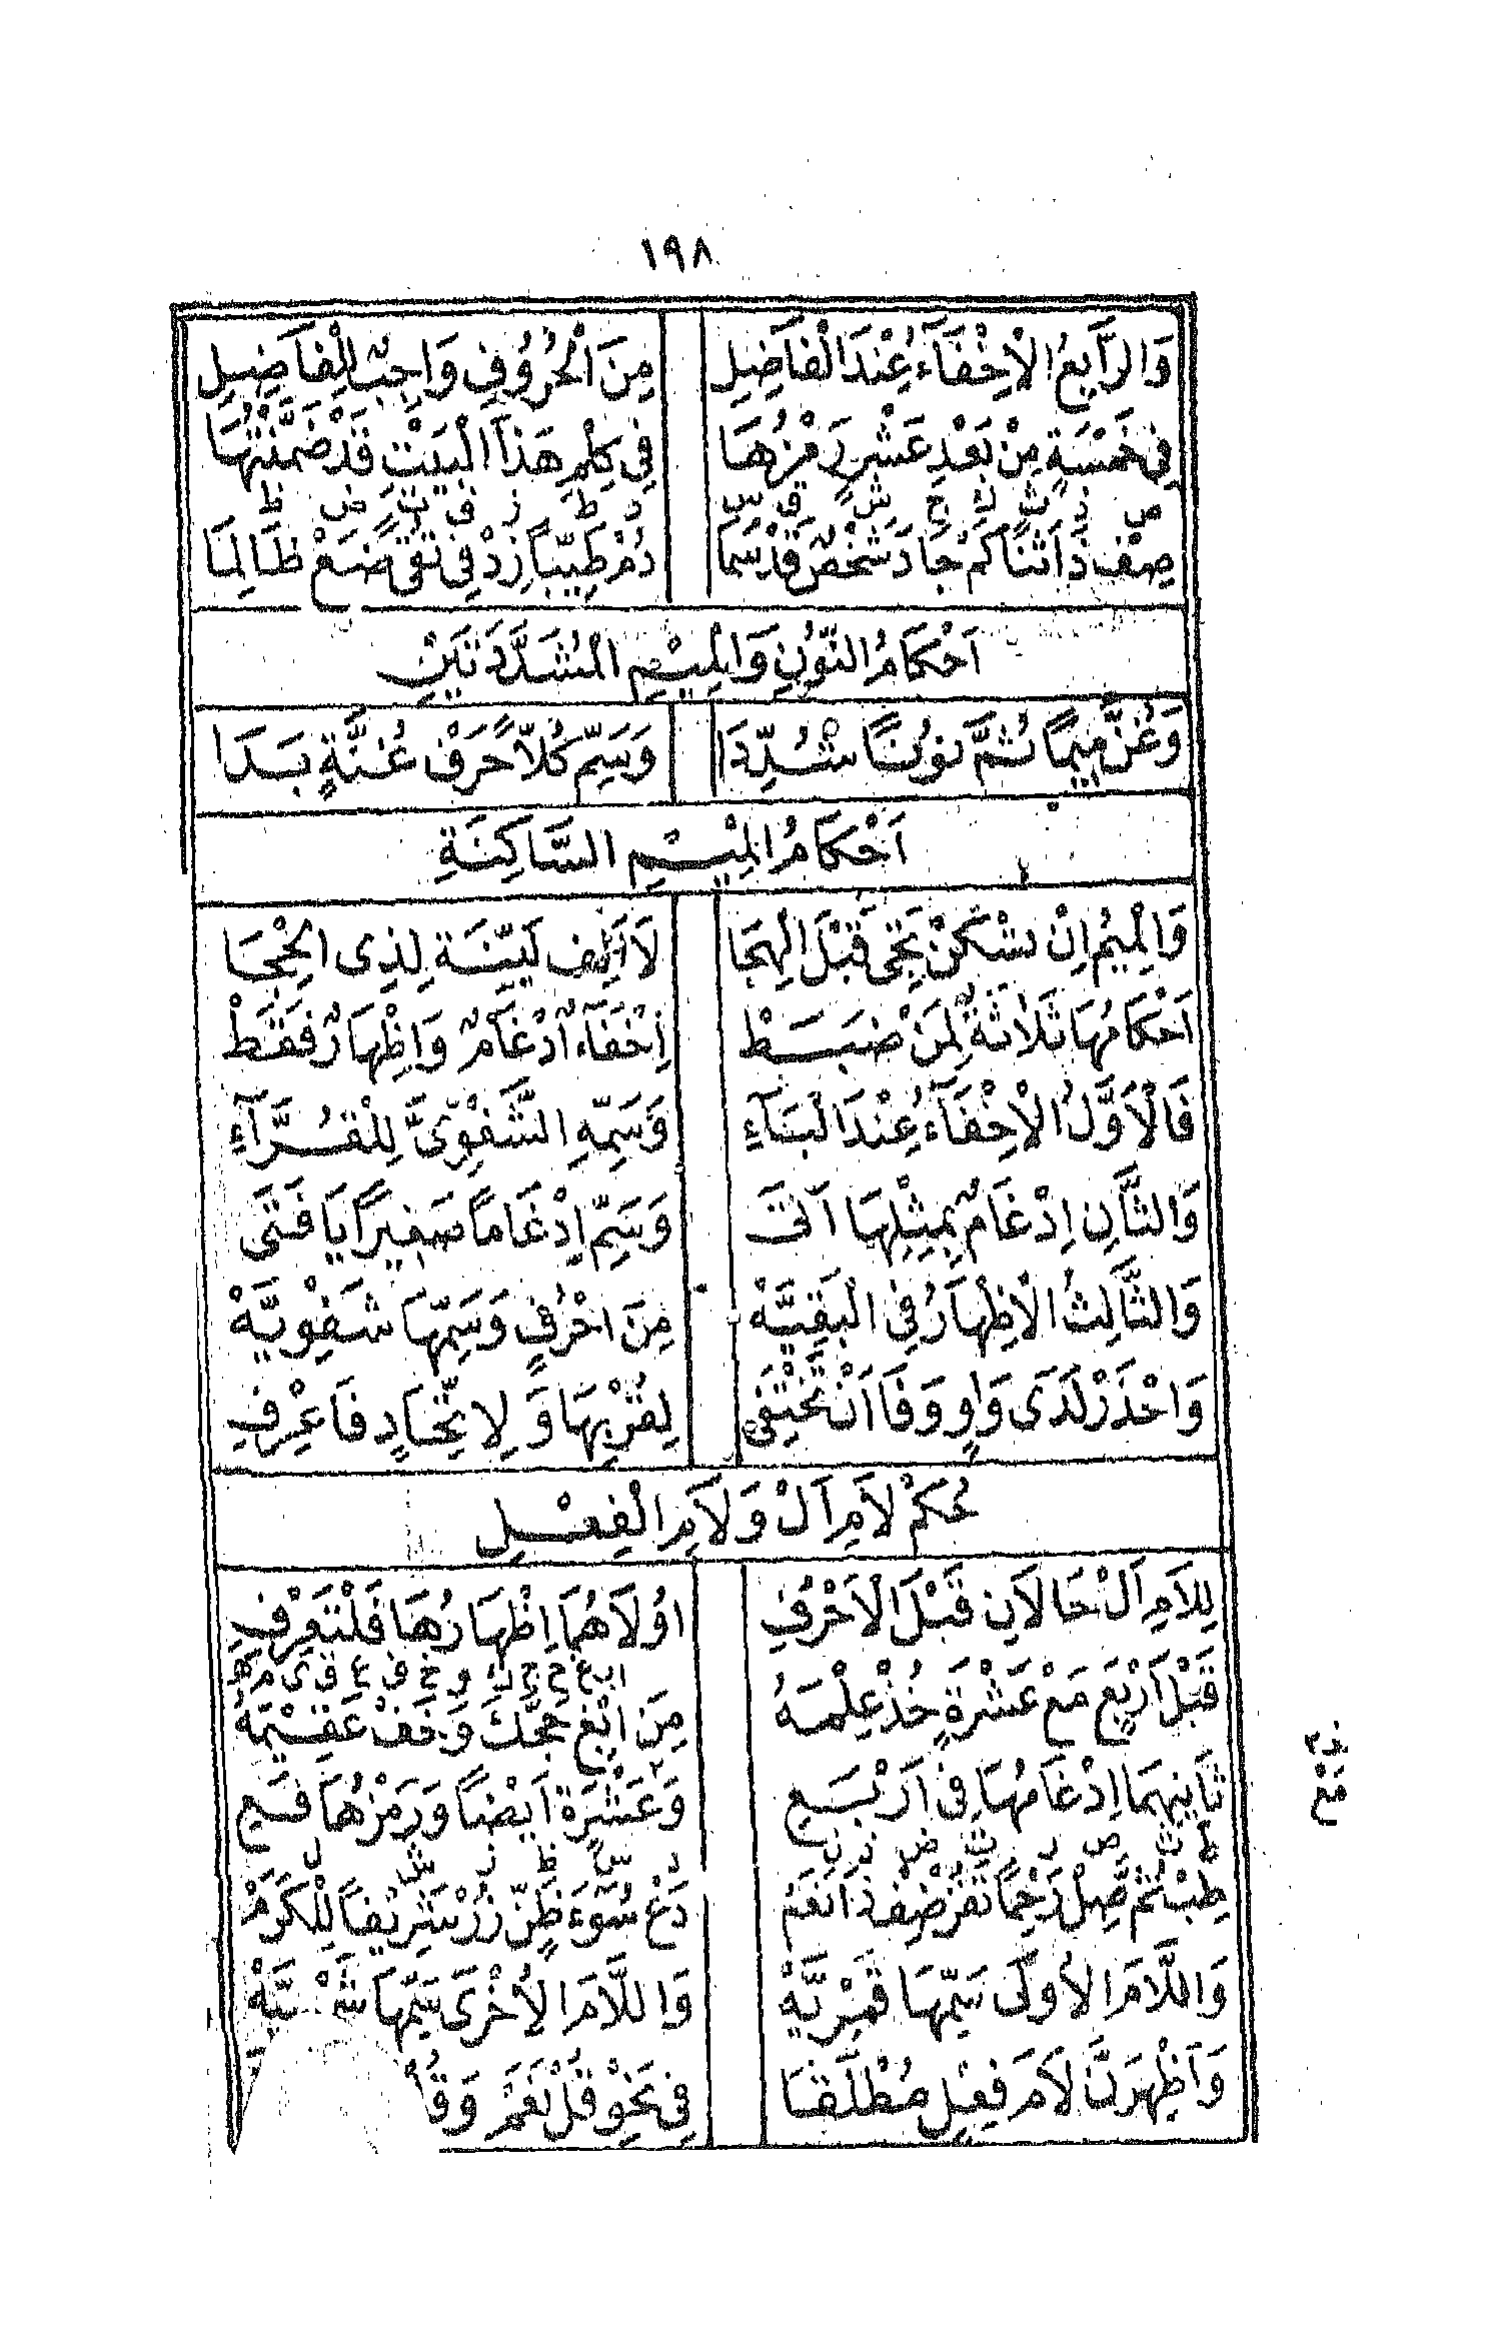 ١٩٨
وَالرَّابِعُ الْاِخْفَآءُ عِنْدَ الْفَاضِلِ مِنَ الْحُرُوُفِ وَاجِبٌ لِلْفَاضِلِ
فِى خَمْسَةٍ مِنْ بَعْدِ عَشْرٍ رَمْزُهَا فِى كِلْمِ هَذَا الْبَيْتِ قَدْ ضَمَّنْتُهَا
ص ذ ث ك ج ش ق س د ط ز ف ت ض ظ
صِفْ ذَا ثَنًا كَمْ جَادَ شَخْصٌ قَدْ سَمَا دُمْ طَيِّبًا زِدْ فِى تُقًى ضَعْ ظَالِمَا
اَحْكَامُ النُّوُنِ وَالْمِيْمِ الْمُشَدَّدَتَيْنِ
وَغُنَّ مِيمًا ثُمَّ نُوْنًا شُدِّدَا وَسَمِّ كُلًّا حَرْفَ غُنَّةٍ بَدَا
اَحْكَامُ الْمِيْمِ السَّاكِنَةِ
وَالْمِيمُ اِنْ تَسْكُنْ تَجِى قَبْلَ الْهِجَا لَا اَلِفٍ لَيِّنَةٍ لِذِى الْحِجَا
اَحْكَامُهَا ثَلَاثَةٌ لِمَنْ ضَبَطْ اِخْفَآءٌ ادْغَامٌ وَاِظْهَارٌ فَقَطْ
فَالْاَوَّلُ الْاِخْفَآءُ عِنْدَ الْبَآءِ وَسَمِّهِ الشَّفْوِىَّ لِلْقُرَّآءِ
وَالثَّانِ اِدْغَامٌ بِمِثْلِهَا اَتَى وَسَمِّ اِدْغَامًا صَغِيرًا يَا فَتَى
وَالثَّالِثُ الْاِظْهَارُ فِى الْبَقِيَّهْ مِنَ احْرُفٍ وَسَمِّهَا شَفْوِيَّهْ
وَاحْذَرْ لَدَى وَاوٍ وَفَا اَنْ تَخْتَفِى لِقُرْبِهَا وَلِاتِّحَادٍ فَاعْرِفِ
حُكْمُ لَامِ اَلْ وَلَامِ الْفِعْلِ
لِلَامِ اَلْ حَالَانِ قَبْلَ الْاَحْرُفِ اُوُلَاهُمَا اِظْهَارُهَا فَلْتَعْرِفِ
ا ب غ ح ج ك و خ ف ع ق ى م ه
قَبْلَ اَرْبَعٍ مَعْ عَشْرَةٍ خُذْ عِلْمَهُ مِنَ ابْغِ حَجَّكَ وَخَفْ عَقِيْمَهُ
ثَانِيهِمَا اِدْغَامُهَا فِى اَرْبَعِ وَعَشْرَةٍ اَيْضًا وَرَمْزُهَا فَعِ
ط ث ص ر ت ض ذ ن د س ظ ز ش ل
طِبْ ثُمَّ صِلْ رَحْمًا تَفُزْ ضِفْ ذَا نِعَمْ دَعْ سُوَءَ ظَنٍّ زُرْ شَرِيْفًا لِلْكَرَمْ
وَاللَّامَ الْاُولَى سَمِّهَا قَمْرِيَّهْ وَاللَّامَ الْاُخْرَى سَمِّهَا
وَاَظْهِرَنَّ لَامَ فِعْلٍ مُطْلَقَا فِى نَحْوِ قُلْ نَعَمْ